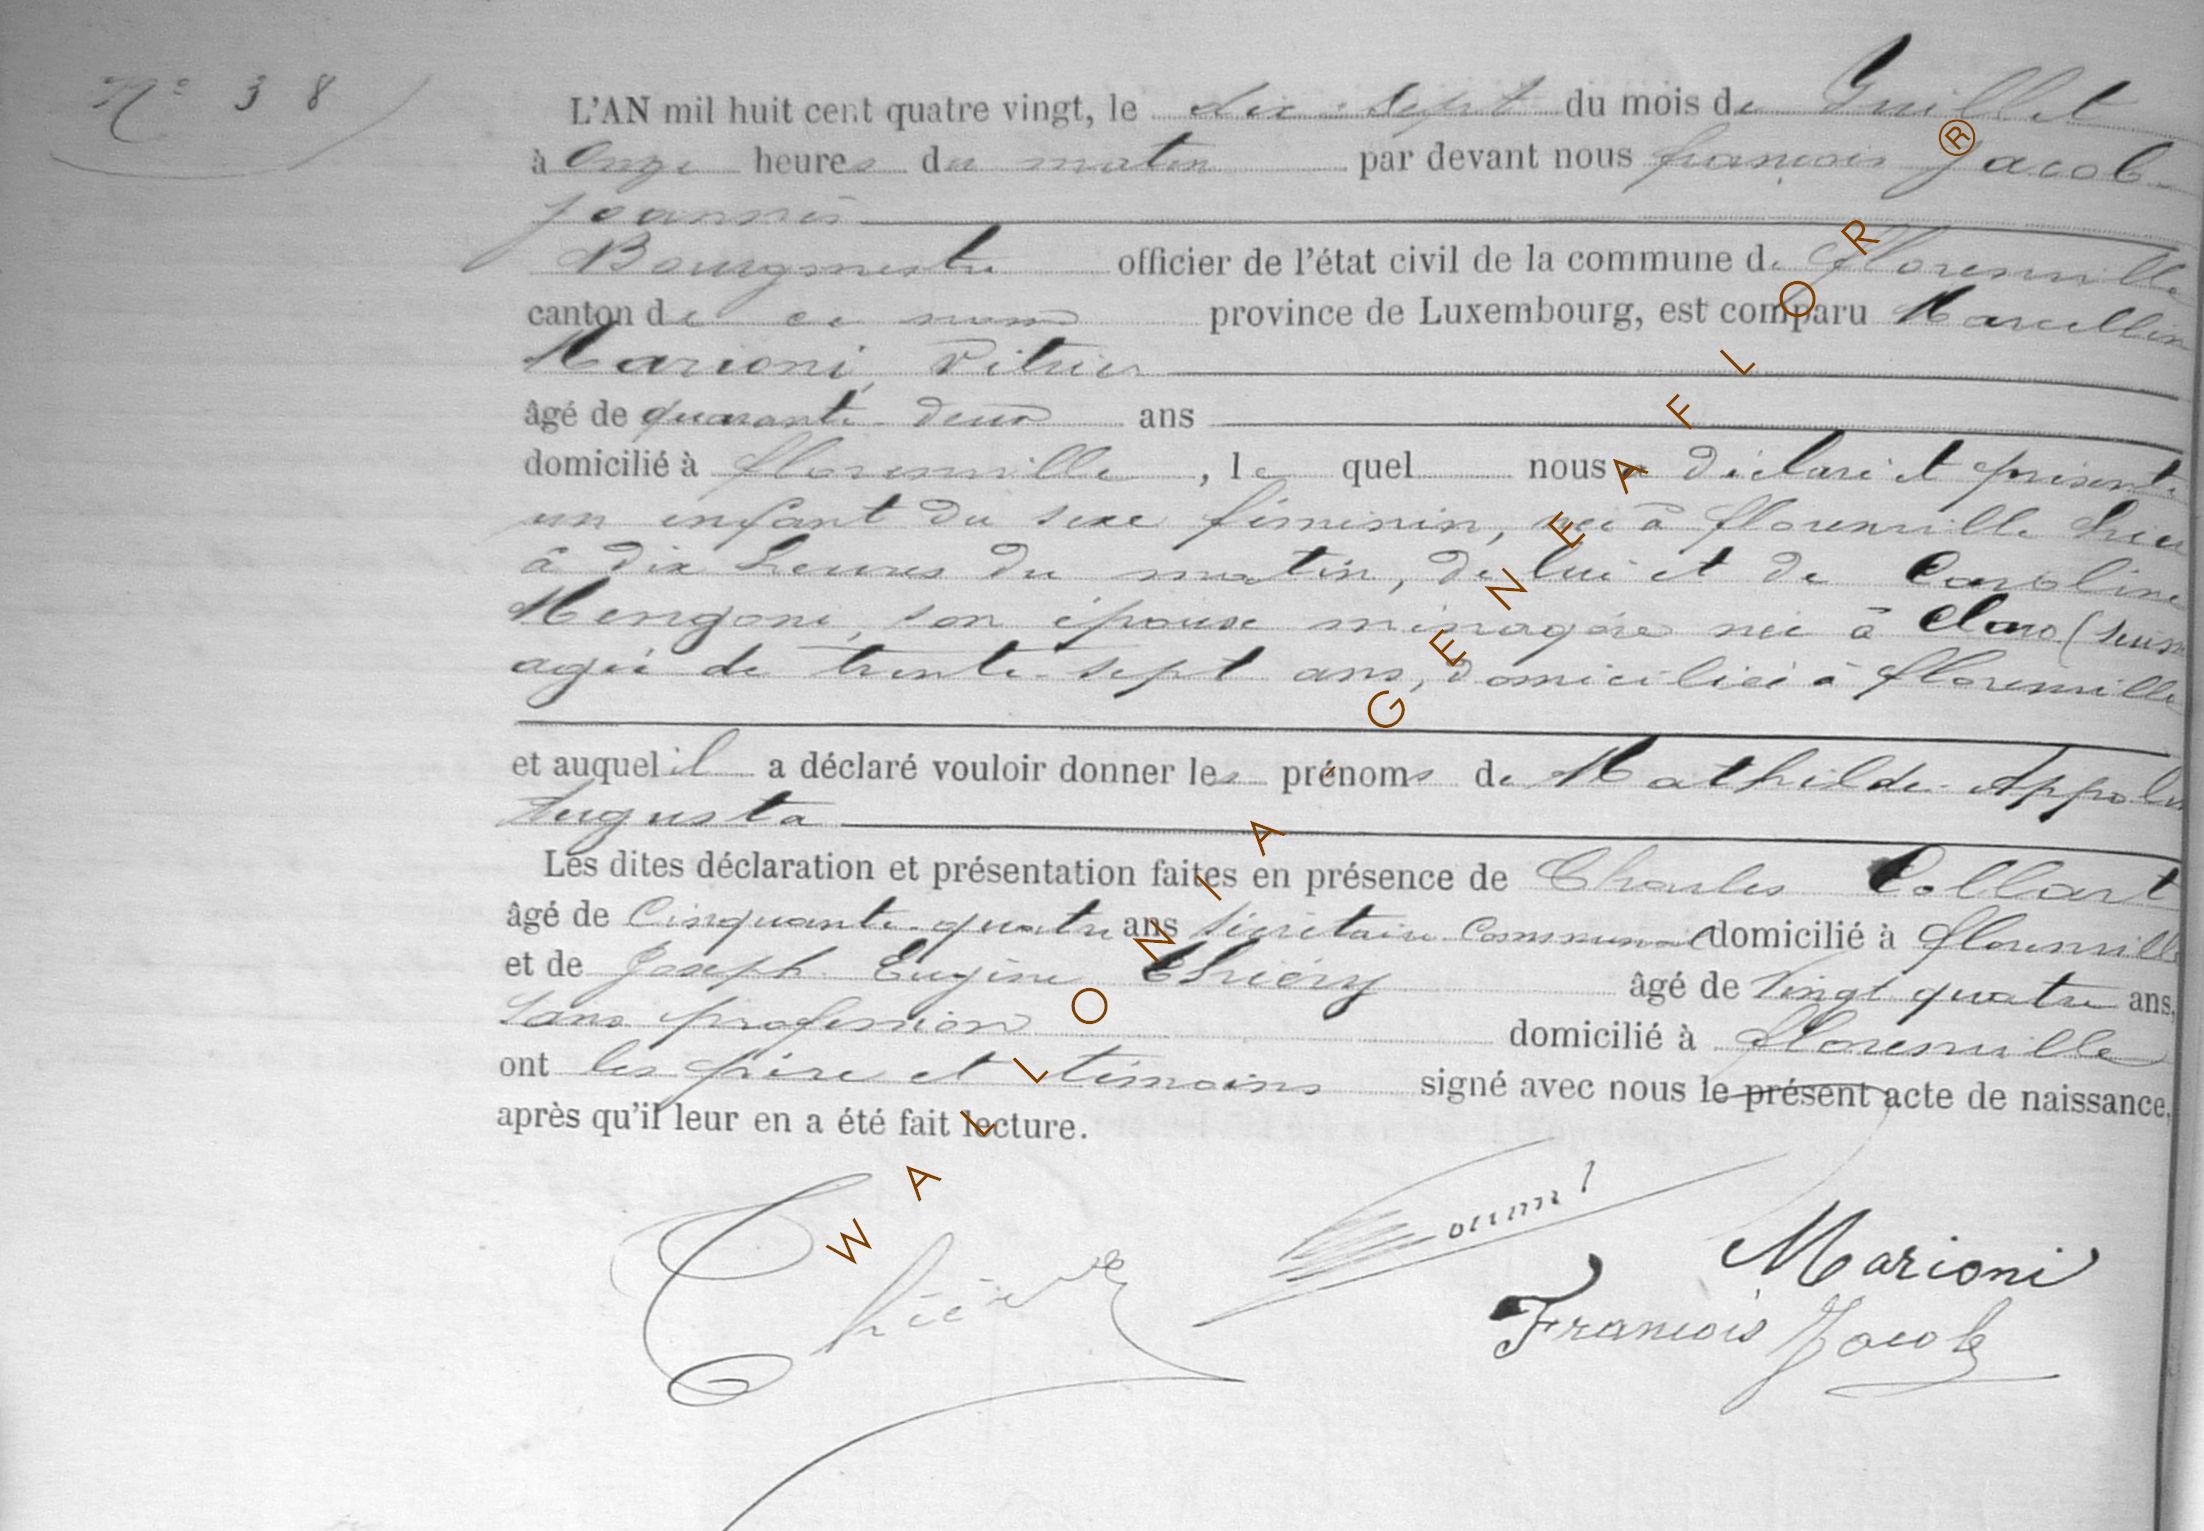 N° 38
L'AN mil huit cent quatre vingt, le dix-sept du mois de Juillet
à Onze heures du matin par devant nous françois Jacob
Joannès
Bourgmestre officier de l'état civil de la commune de florenville
canton de ce nom province de Luxembourg, est comparu Marcellin
Marioni, Vitrier
âgé de quarante-deux ans
domicilié à florenville, le quel nous a déclaré et présenté
un enfant du sexe féminin, née à florenville hier
à dix heures du matin, de lui et de Caroline
Mengoni, son épouse ménagère née à Claro (Suisse
agée de trente-sept ans, domiciliée à florenville
et auquel il a déclaré vouloir donner les prénoms de Mathilde-Appol
Augusta
Les dites déclaration et présentation faites en présence de Charles Collart
âgé de Cinquante-quatre ans Sécrétaire Communal domicilié à florenville
et de Joseph Eugène Thiéry âgé de Vingt quatre ans,
Sans profession domicilié à florenville
ont les père et témoins signé avec nous le présent acte de naissance,
après qu'il leur en a été fait lecture.
Thiéry
Marioni
François Jacob
WALLONIA GENEA FLOR ®